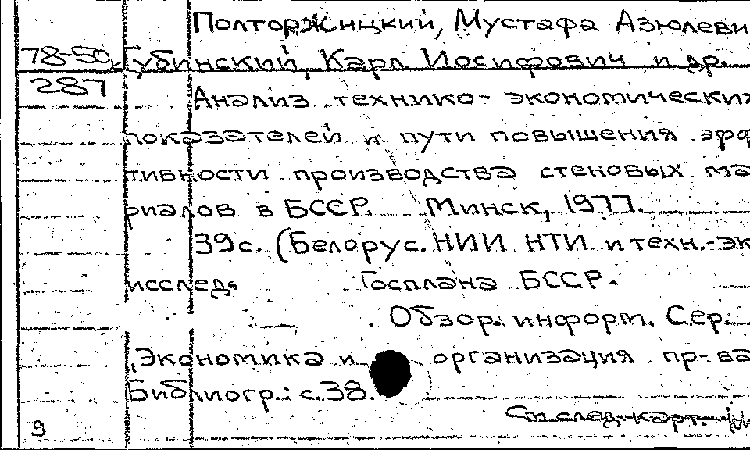 Полторжицкий, Мустафа Азюлеви
78-50 Губинский, Карл Иосифович и др.
287
Анализ технико-экономических
показателей и пути повышения эфф
тивности производства стеновых ма
риалов в БССР. Минск, 1977.
39с. (Белорус. НИИ НТИ и техн.-эк
исслед. Госплана БССР.
Обзор. информ. Сер.
Экономика и организация пр-ва
Библиогр.: с.38.
См след. карт.
9